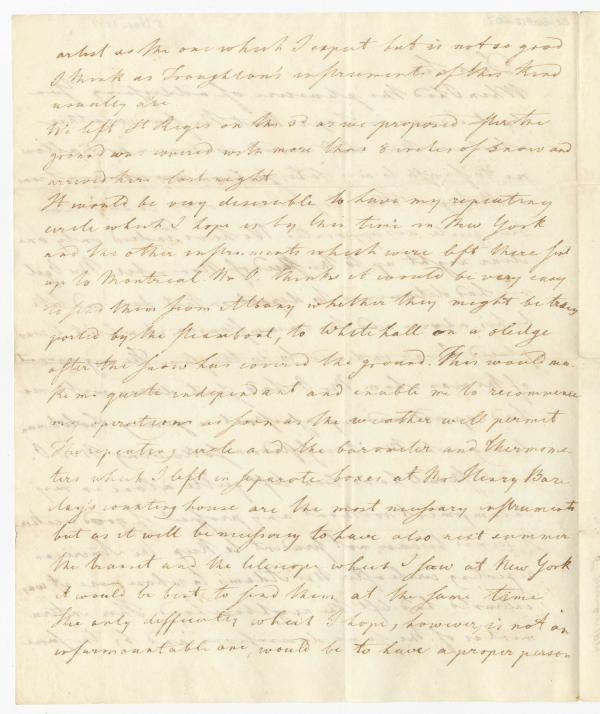 artist as the one which I expect but is not so good
I think as Troughton's instruments of this Kind
usually are
We left St Regis on the 3d as we proposed after the
ground was covered with more than 8 inches of snow and
arrived here last night
It would be very desirable to have my repeating
circle which I hope is by this time in New York
and the other instruments which were left there sent
up to Montreal. Mr O. thinks it would be very easy
to send them from Albany whether they might be trans
ported by the steamboat, to Whitehall on a sledge
after the snow has covered the ground. This would ma-
ke me quite independant and enable me to recommence
my operations as soon as the weather will permit
The repeating circle and the barometer and thermome-
ters which I left in separate boxes at Mr Henry Bar
clay's counting house are the most necessary instruments
but as it will be necessary to have also next summer
the transit and the telescope which I saw at New York
it would be best to send them at the same time
The only difficulty which I hope, however, is not an
insurmountable one, would be to have a proper person